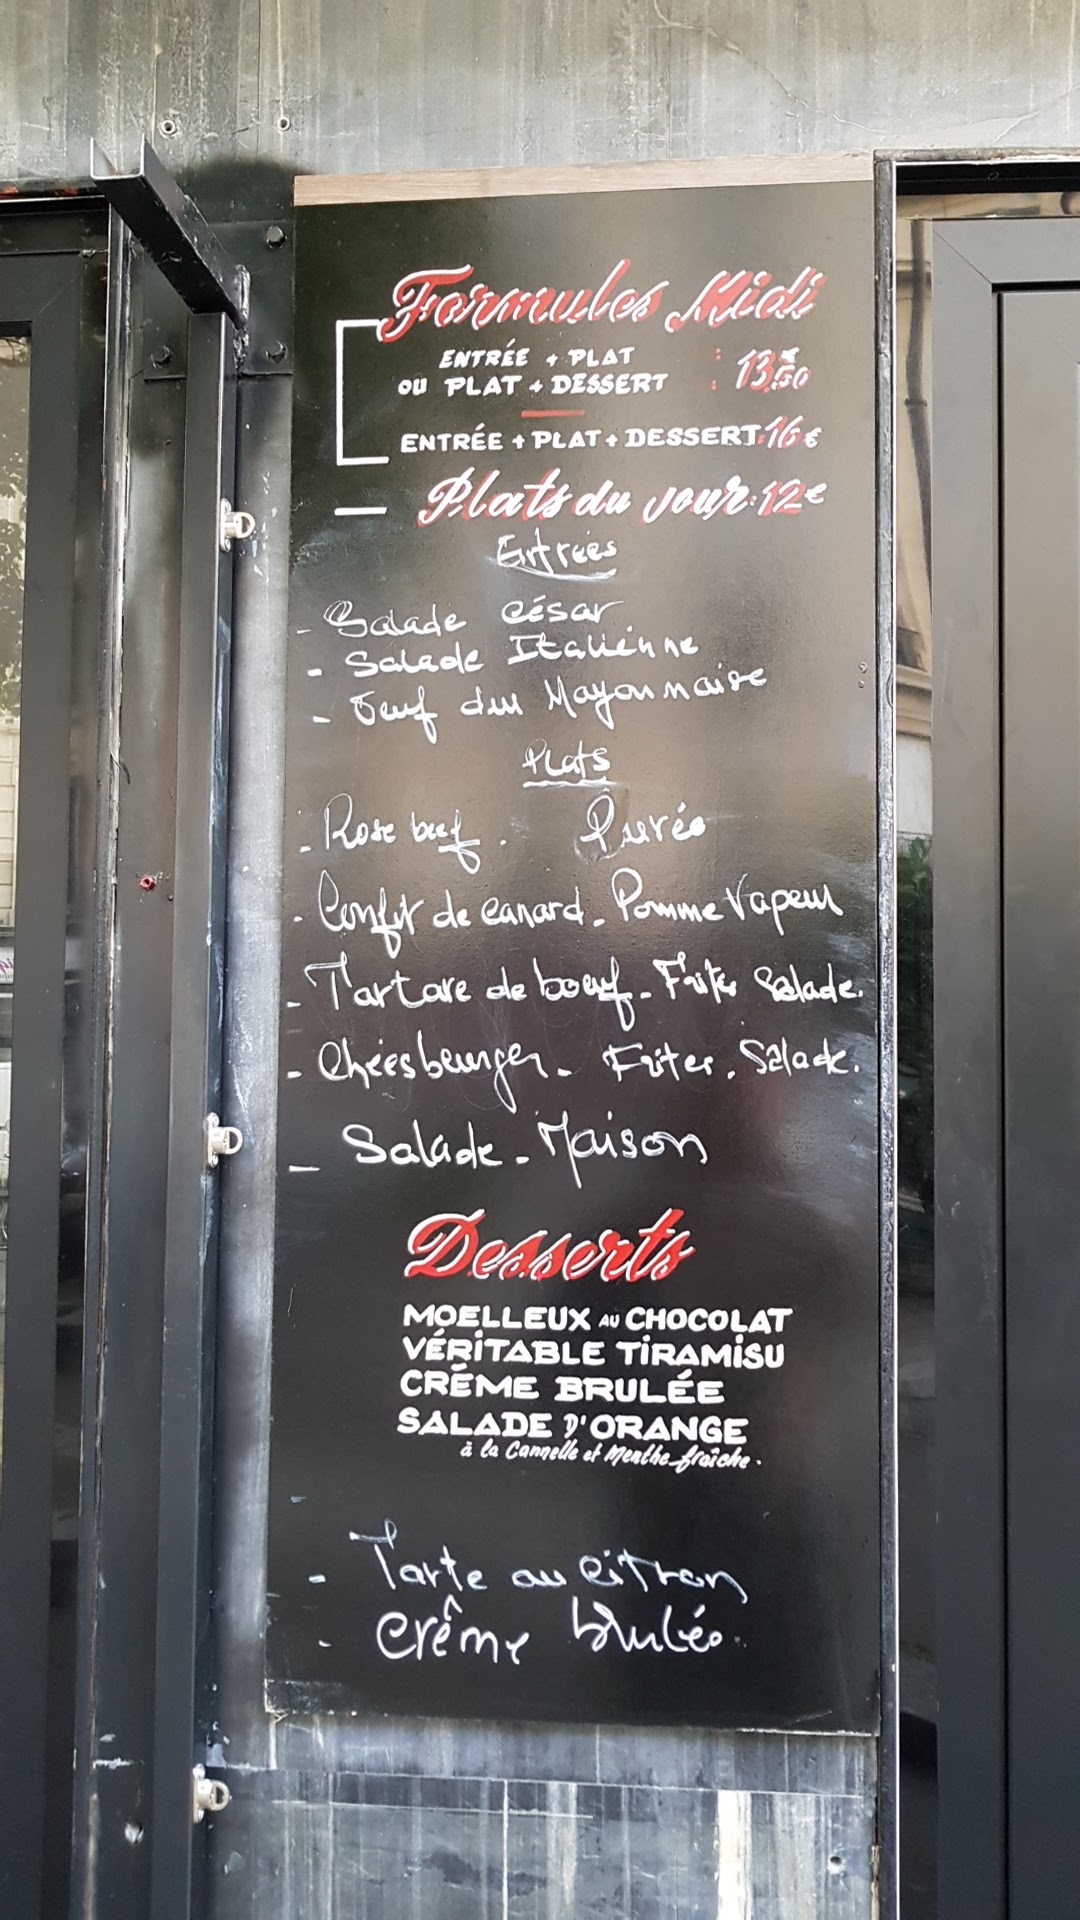 Formules Midi
ENTRÉE + PLAT
OU PLAT + DESSERT : 13€50
ENTRÉE + PLAT + DESSERT : 16€
Plats du jour : 12€
Entrées
- Salade César
- Salade Italienne
- Oeuf dur Mayonnaise
Plats
- Rose beef. Purée
- Confit de canard - Pomme Vapeur
- Tartare de boeuf - Frites Salade.
- Cheesburger - Frites. Salade.
- Salade - Maison
Desserts
MOELLEUX AU CHOCOLAT
VÉRITABLE TIRAMISU
CRÉME BRULÉE
SALADE D'ORANGE
à la Cannelle et Menthe fraîche.
- Tarte au citron
- Crême brulée